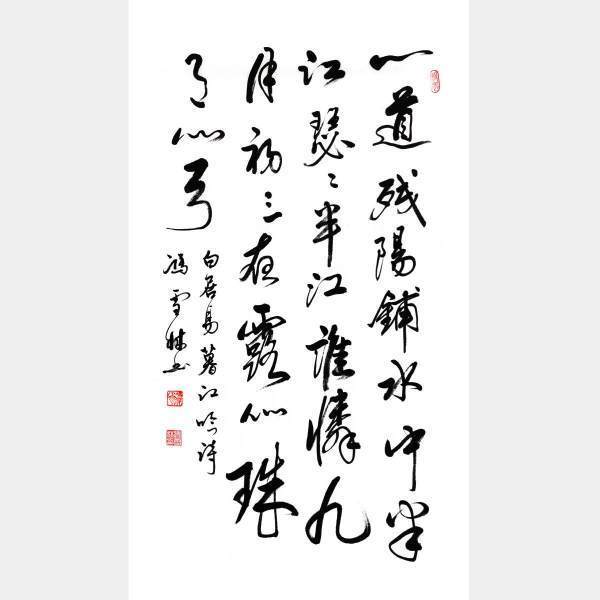 一道残陽鋪水中半
江瑟〻半江誰憐九
月初三夜露似珠
月似弓
白居易暮江吟诗
馮雪林书